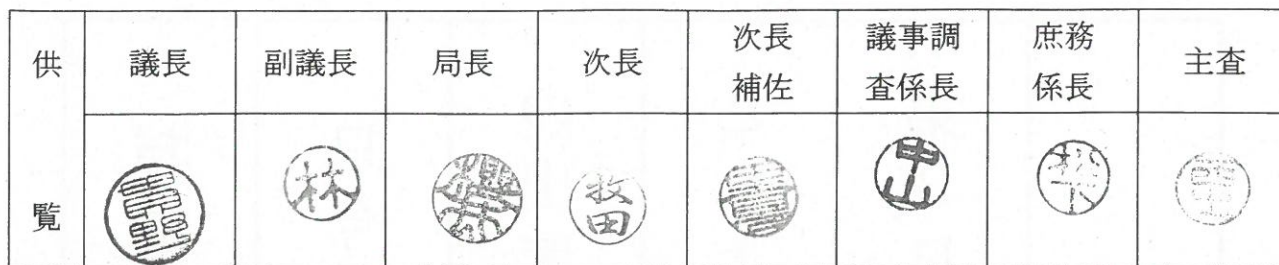 供覧
議長
副議長
局長
次長
次長補佐
議事調査係長
庶務係長
主査
林
牧田
中山
松下